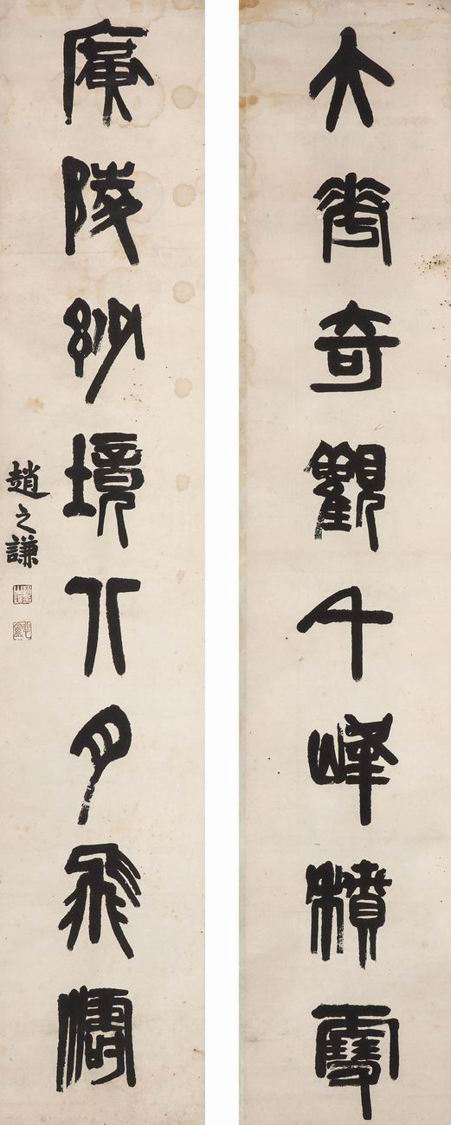 大華奇觀千峰積雪
廣陵玅境八月飛濤
趙之謙